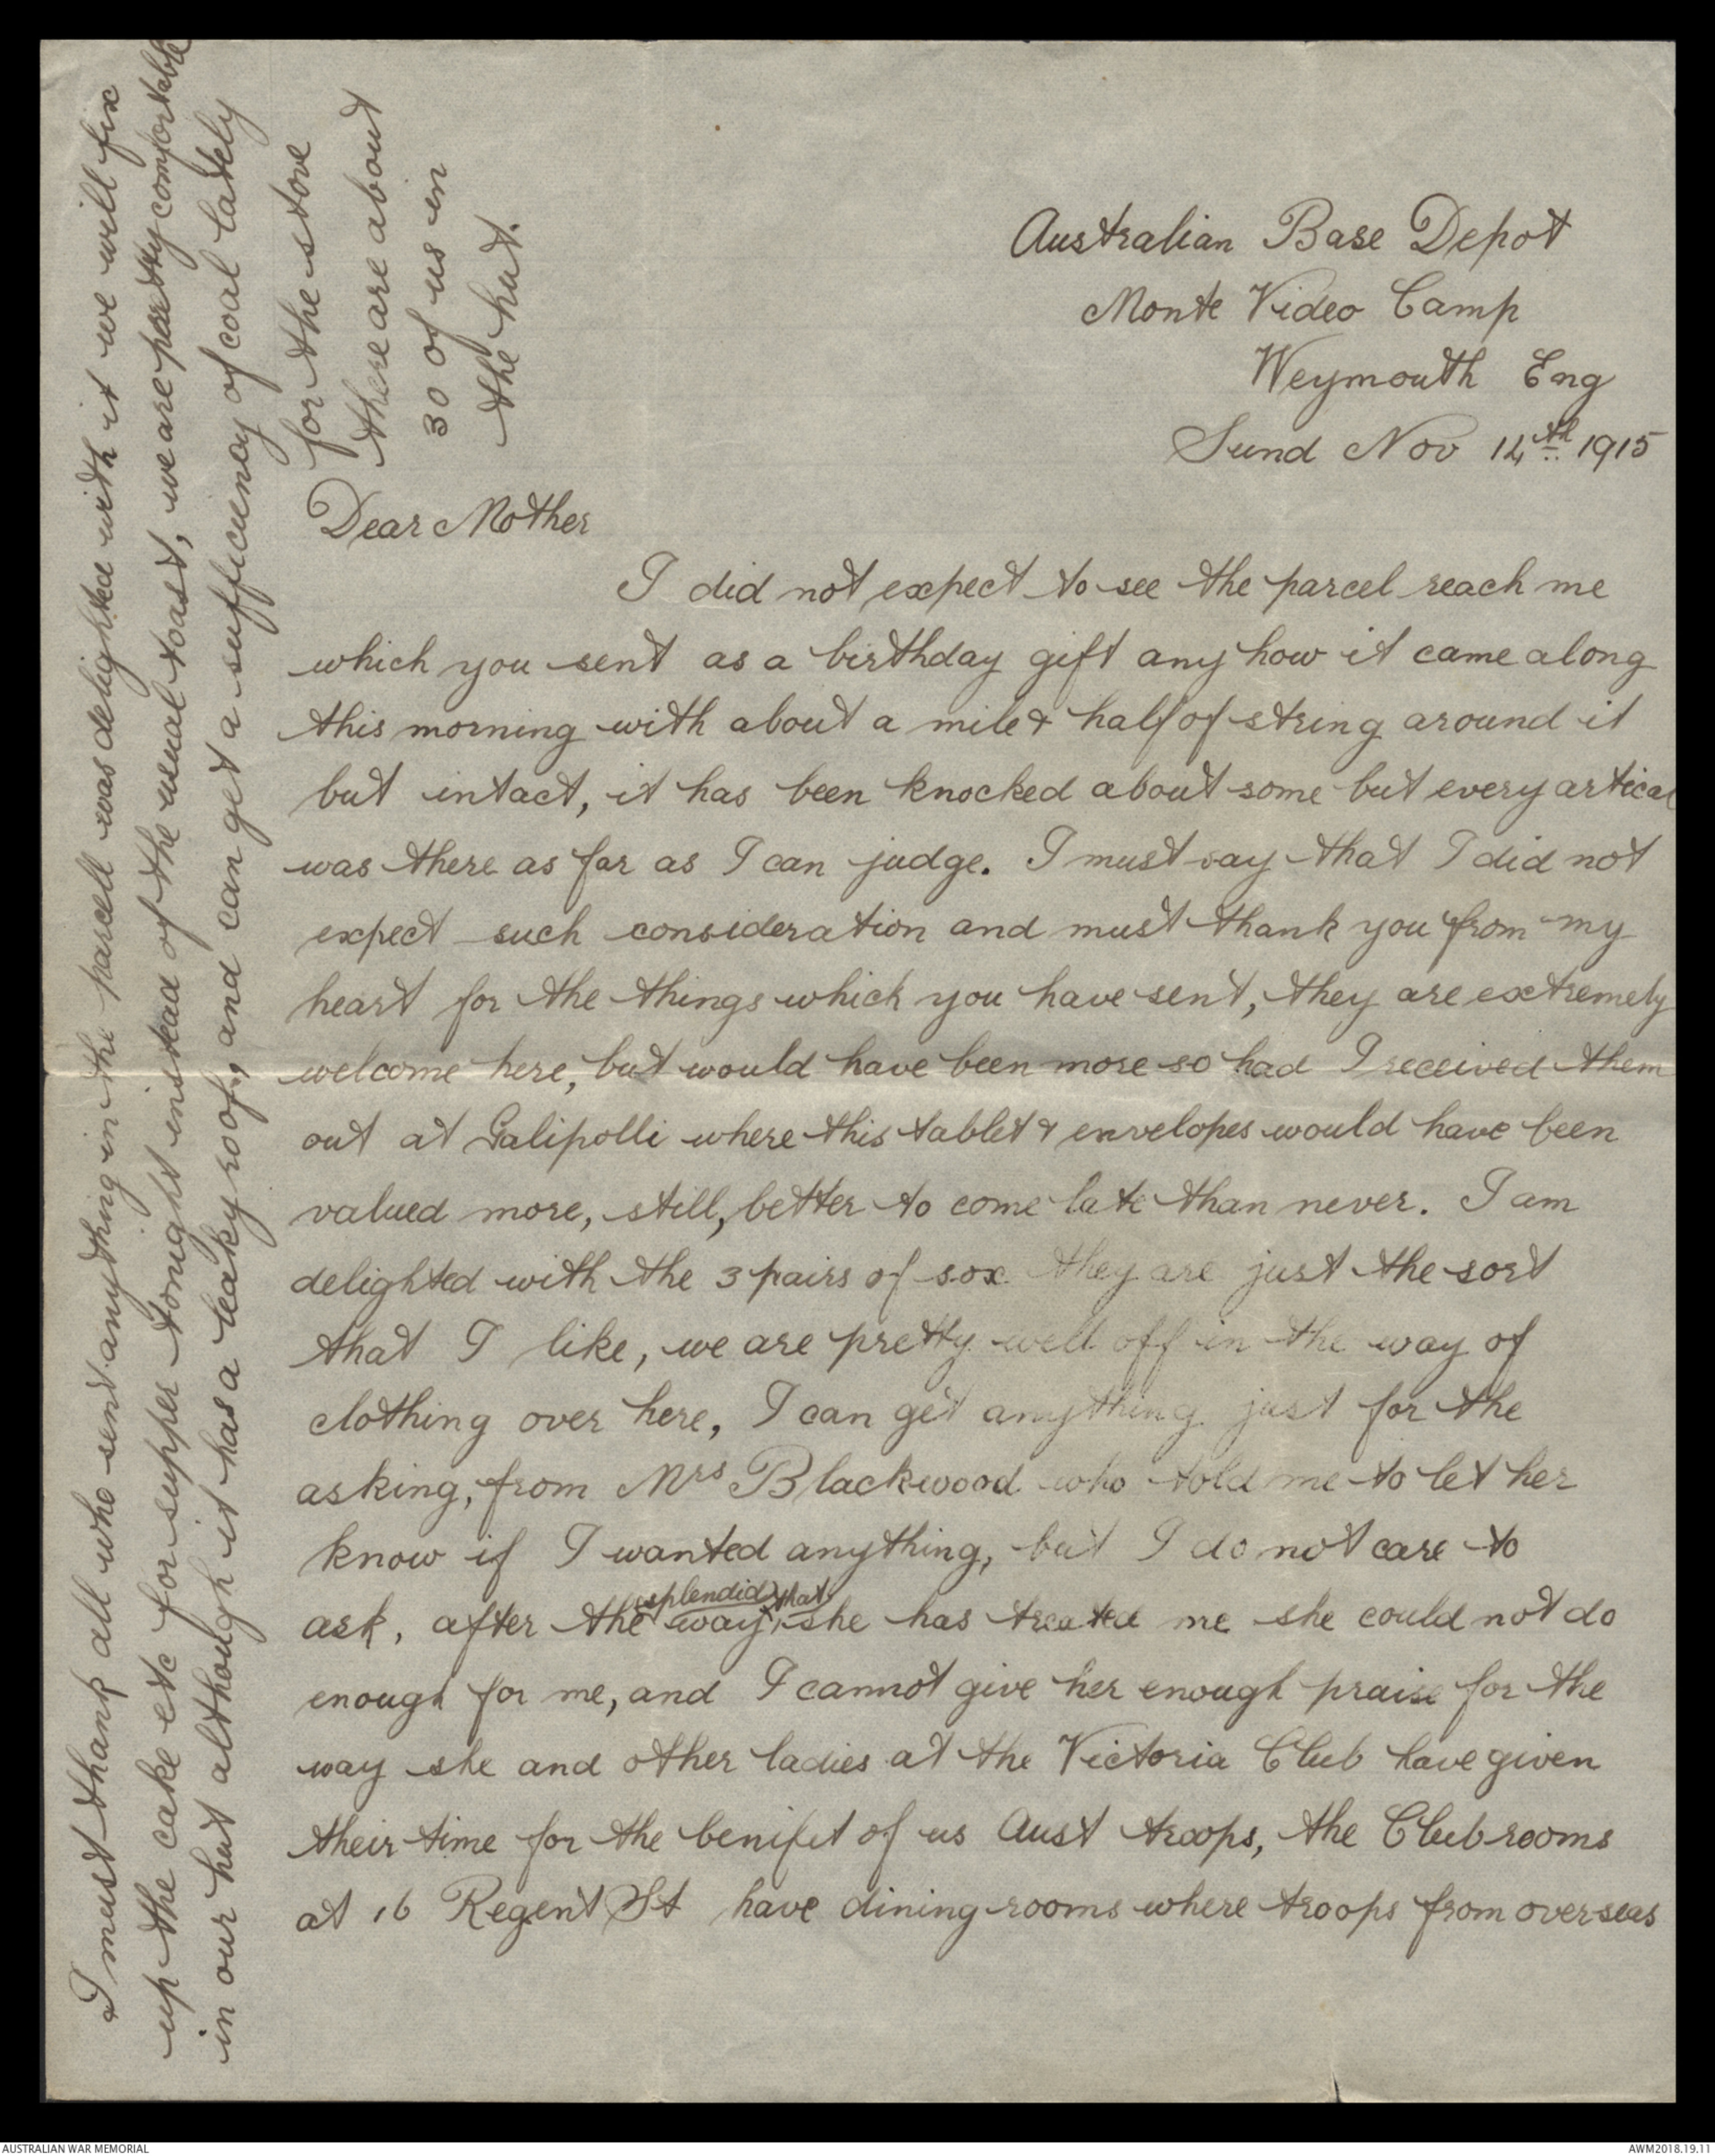 Australian Base Depot
Monte Video Camp
Weymouth Eng
Sund Nov 14th 1915
Dear Mother
I did not expect to see the parcel reach me
which you sent as a birthday gift any how it came along
this morning with about a mile & half of string around it
but intact, it has been knocked about some but every artical
was there as far as I can judge. I must say that I did not
expect such consideration and must thank you from my
heart for the things which you have sent, they are extremely
welcome here, but would have been more so had I received them
out at Galipolli where this tablet & envelopes would have been
valued more, still, better to come late than never. I am
delighted with the 3 pairs of sox they are just the sort
that I like, we are pretty well off in the way of
clothing over here, I can get anything just for the
asking, from Mrs Blackwood who told me to let her
know if I wanted anything, but I do not care to
ask, after the splendid way that she has treated me she could not do
enough for me, and I cannot give her enough praise for the
way she and other ladies at the Victoria Club have given
their time for the benifit of us Aust troops, the Club rooms
at 16 Regent St have dining rooms where troops from overseas
I must thank all who sent anything in the parcell was delighted with it we will fix
up the cake etc for supper tonight instead of the usual toast, we are pretty comfortable
in our hut although it has a leaky roof, and can get a sufficiency of coal lately
for the stove
there are about
30 of us in
the hut.
AUSTRALIAN WAR MEMORIAL
AWM2018.19.11